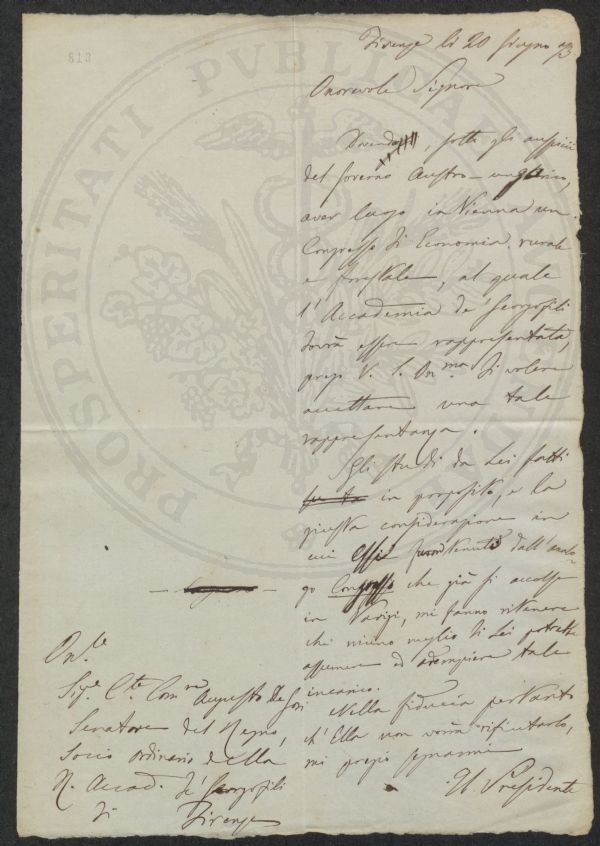 813
Firenze li 20 Giugno
Onorevole Signore
Dovendo, sotto gli auspicii
del Governo Austro-ungarico,
aver luogo in Vienna un
Congresso di Economia rurale
e forestale, al quale
l'Accademia de Georgofili
dovrà essere rappresentata,
prego V. S. On.ma di volere
accettare una tale
rappresentanza.
Gli studi da Lei fatti
in proposito, e la
giusta considerazione in
cui essi furon tenuti dall'analo-
go Congresso che già si accolse
in Parigi, mi fanno ritenere
che niuno meglio di Lei potrebbe
assumere ed adempiere tale
incarico.
Nella fiducia pertanto
ch'Ella non vorrà rifiutarlo,
mi pregio segnarmi
Il Presidente
On.le
Sig.e C.te Com.re Augusto De Gori
Senatore del Regno,
Socio ordinario della
R. Accad. de' Georgofili
di Firenze
PROSPERITATI PVBLICAE